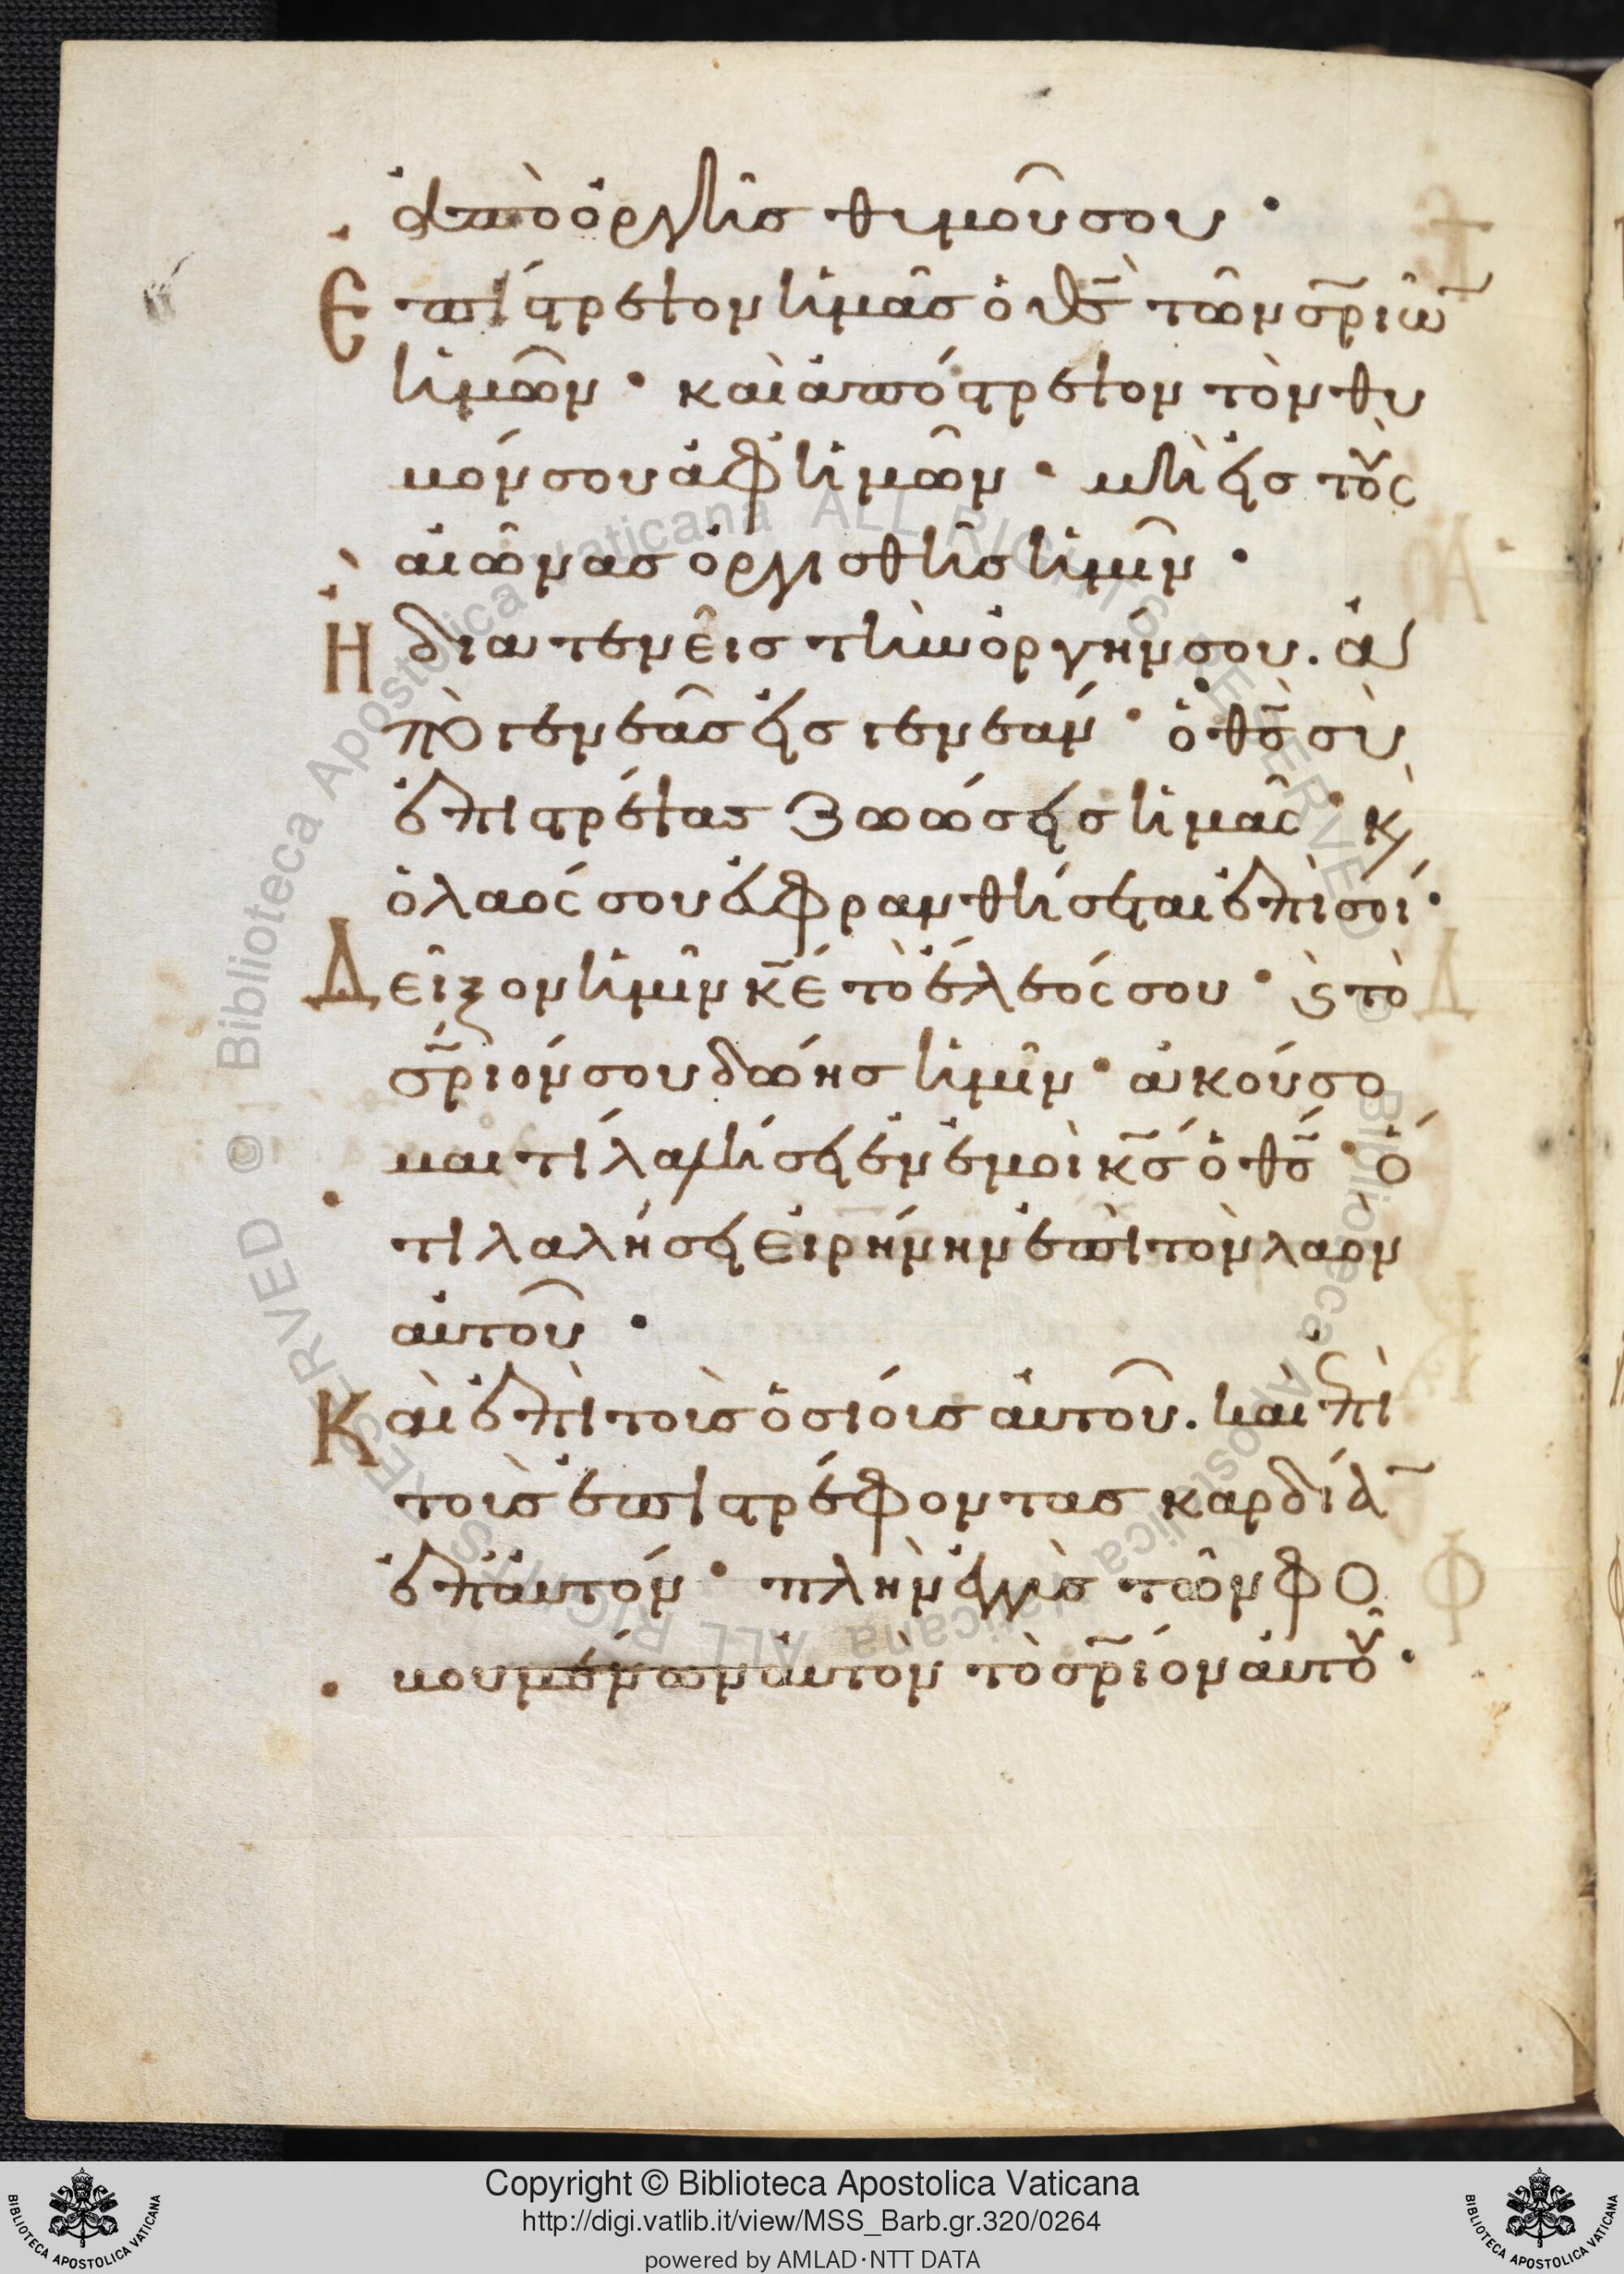 ἀπὸ ὀργῆς θυμοῦ σου ·
Ἐπίστρεψον ἡμᾶς ὁ θς̄ τῶν σρ̄ιῶ
ἡμῶν · καὶ ἀπόστρεψον τὸν θυ
μόν σου ἀφ ἡμῶν · μὴ εἰς τοὺς
αἰῶνας ὀργισθῆς ἡμῖν ·
Ἢ διατενεῖς τὴν ὀργήν σου. ἀ
πὸ γενεᾶς εἰς γενεάν · ὁ θς̄ σὺ
ἐπιστρέψας ζωώσεις ἡμᾶς · κ̀
ὁ λαός σου εὐφρανθήσεται ἐπὶ σοί ·
Δεῖξον ἡμῖν κ̄ε τὸ ἔλεός σου · ϛ̀ τὸ
σρ̄ιόν σου δώης ἡμῖν · ἀκούσο
μαι τί λαλήσει ἐν ἐμοὶ κς̄ ὁ θς̄ · ὅ
τι λαλήσει εἰρήνην ἐπὶ τὸν λαὸν
αὐτοῦ ·
Καὶ ἐπὶ τοὺς ὁσίους αὐτοῦ. καὶ ἐπὶ
τοὺς ἐπιστρέφοντας καρδίαν
ἐπ αὐτόν · πλὴν ἐγγὺς τῶν φο
βουμένων αὐτὸν τὸ σρ̄ιον αὐτοῦ ·
Copyright © Biblioteca Apostolica Vaticana
http://digi.vatlib.it/view/MSS_Barb.gr.320/0264
powered by AMLAD·NTT DATA
BIBLIOTECA APOSTOLICA VATICANA
BIBLIOTECA APOSTOLICA VATICANA